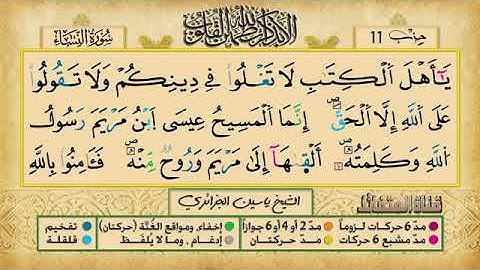 حزب 11
سُورَةُ النِّسَاءِ
يَٰٓأَهْلَ ٱلْكِتَٰبِ لَا تَغْلُوا۟ فِے دِينِكُمْ وَلَا تَقُولُوا۟
عَلَى ٱللَّهِ إِلَّا ٱلْحَقَّ إِنَّمَا ٱلْمَسِيحُ عِيسَى ٱبْنُ مَرْيَمَ رَسُولُ
ٱللَّهِ وَكَلِمَتُهُۥٓ أَلْقَىٰهَآ إِلَىٰ مَرْيَمَ وَرُوحٌ مِّنْهُ فَـَٔامِنُوا۟ بِاللَّهِ
الشيخ ياسين الجزائري
مدّ 6 حركات لزوماً مدّ 2 أو 4 أو 6 جوازاً إخفاء، ومواقع الغُنَّة (حركتان) تفخيم
مدّ مشبع 6 حركات مدّ حركتان إدغام، وما لا يُلفظ قلقلة